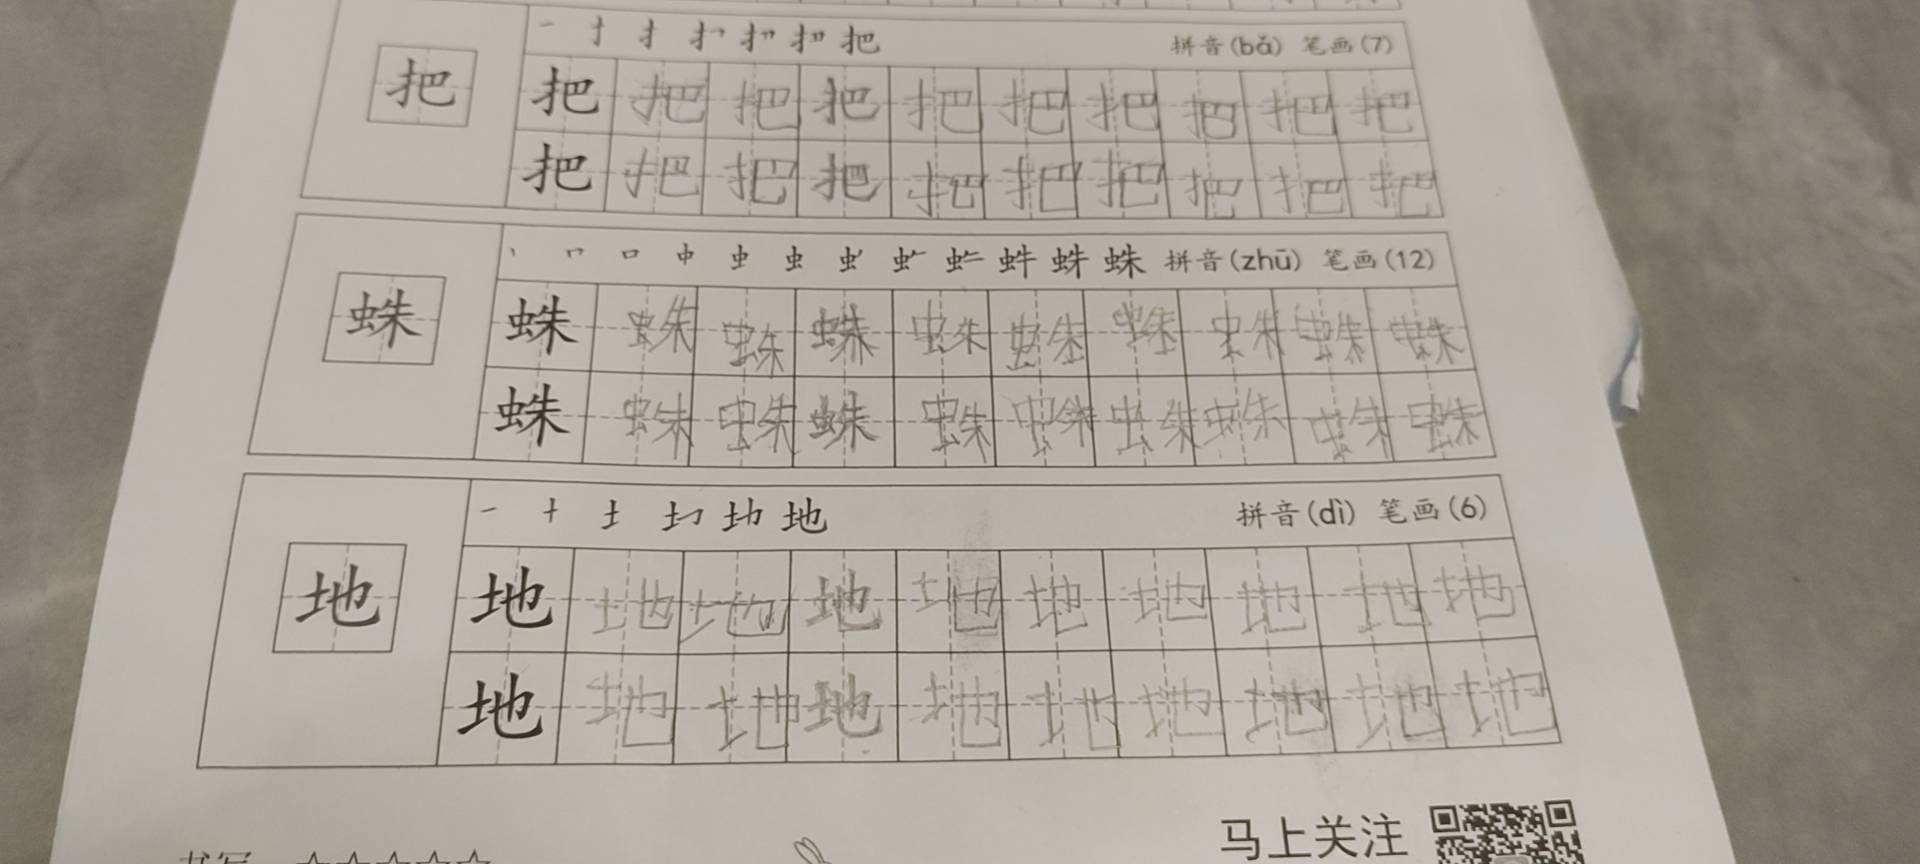 一 十 扌 扌 扌 扌 把 拼音(bǎ) 笔画(7)
把
把 把 把 把 把 把 把 把 把 把
把 把 把 把 把 把 把 把 把 把
丶 口 中 虫 虫 蛛 拼音(zhū) 笔画(12)
蛛
蛛 蛛 蛛 蛛 蛛 蛛 蛛 蛛 蛛 蛛
蛛 蛛 蛛 蛛 蛛 蛛 蛛 蛛 蛛 蛛
一 十 土 地 拼音(dì) 笔画(6)
地
地 地 地 地 地 地 地 地 地 地
地 地 地 地 地 地 地 地 地 地
马上关注
书写 ☆☆☆☆☆